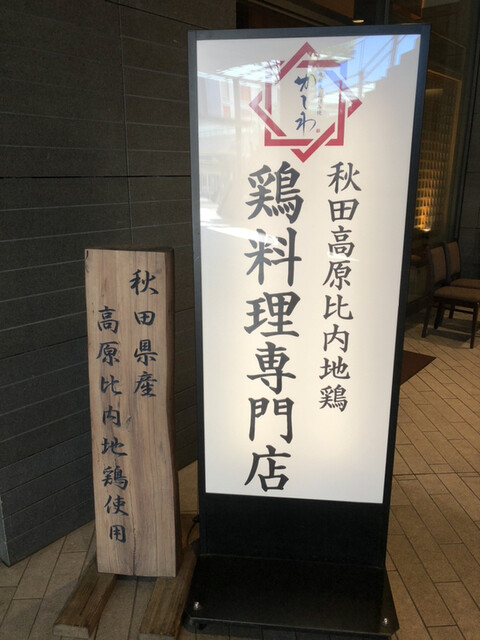 かしわ
秋田高原比内地鶏
鶏料理専門店
秋田県産
高原比内地鶏使用